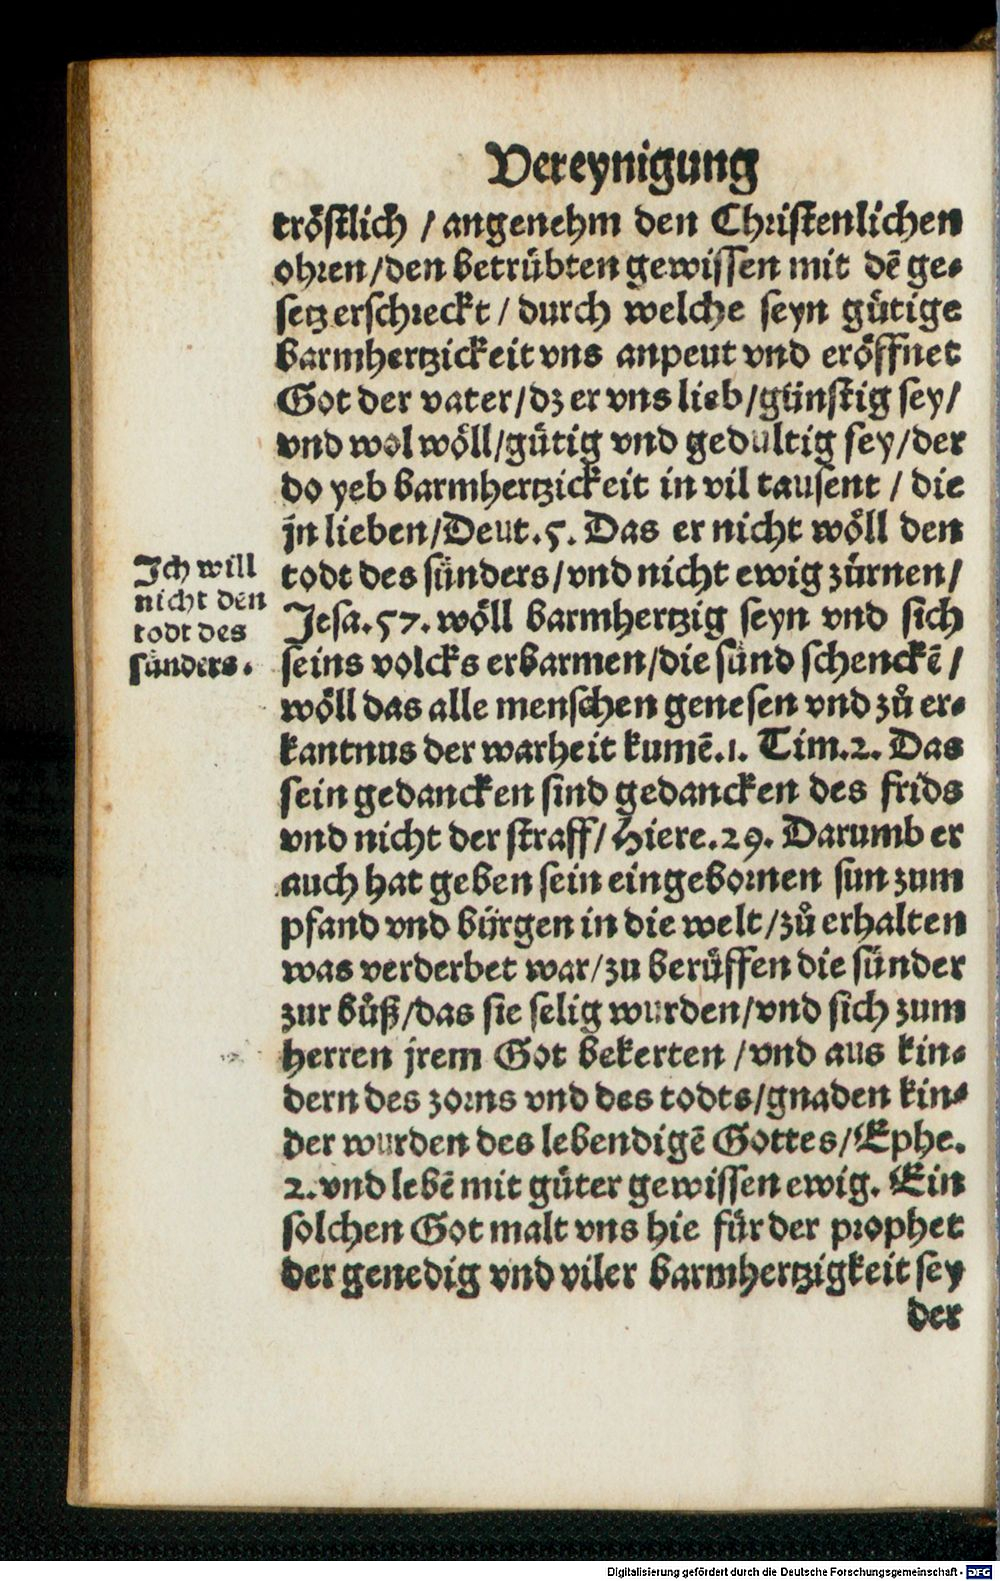 Vereynigung
tröstlich / angenehm den Christenlichen
ohren/den betrübten gewissen mit dē ge⸗
setz erschreckt / durch welche seyn gütige
barmhertzickeit vns anpeut vnd eröffnet
Got der vater/dz er vns lieb/günstig sey/
vnd wol wöll/gütig vnd gedultig sey/der
do yeb barmhertzickeit in vil tausent / die
jn lieben/Deut.5. Das er nicht wöll den
todt des sünders/vnd nicht ewig zürnen/
Jesa.57. wöll barmhertzig seyn vnd sich
seins volcks erbarmen/die sünd schenckē/
wöll das alle menschen genesen vnd zů er⸗
kantnus der warheit kumē.1. Tim.2. Das
sein gedancken sind gedancken des frids
vnd nicht der straff/Hiere.29. Darumb er
auch hat geben sein eingebornen sun zum
pfand vnd bürgen in die welt/zů erhalten
was verderbet war/zu berüffen die sünder
zur bůß/das sie selig wurden/vnd sich zum
herren jrem Got bekerten /vnd aus kin⸗
dern des zorns vnd des todts/gnaden kin⸗
der wurden des lebendigē Gottes/Ephe.
2. vnd lebē mit gůter gewissen ewig. Ein
solchen Got malt vns hie für der prophet
der genedig vnd viler barmhertzigkeit sey
der
Ich will
nicht den
todt des
sünders.
Digitalisierung gefördert durch die Deutsche Forschungsgemeinschaft - DFG